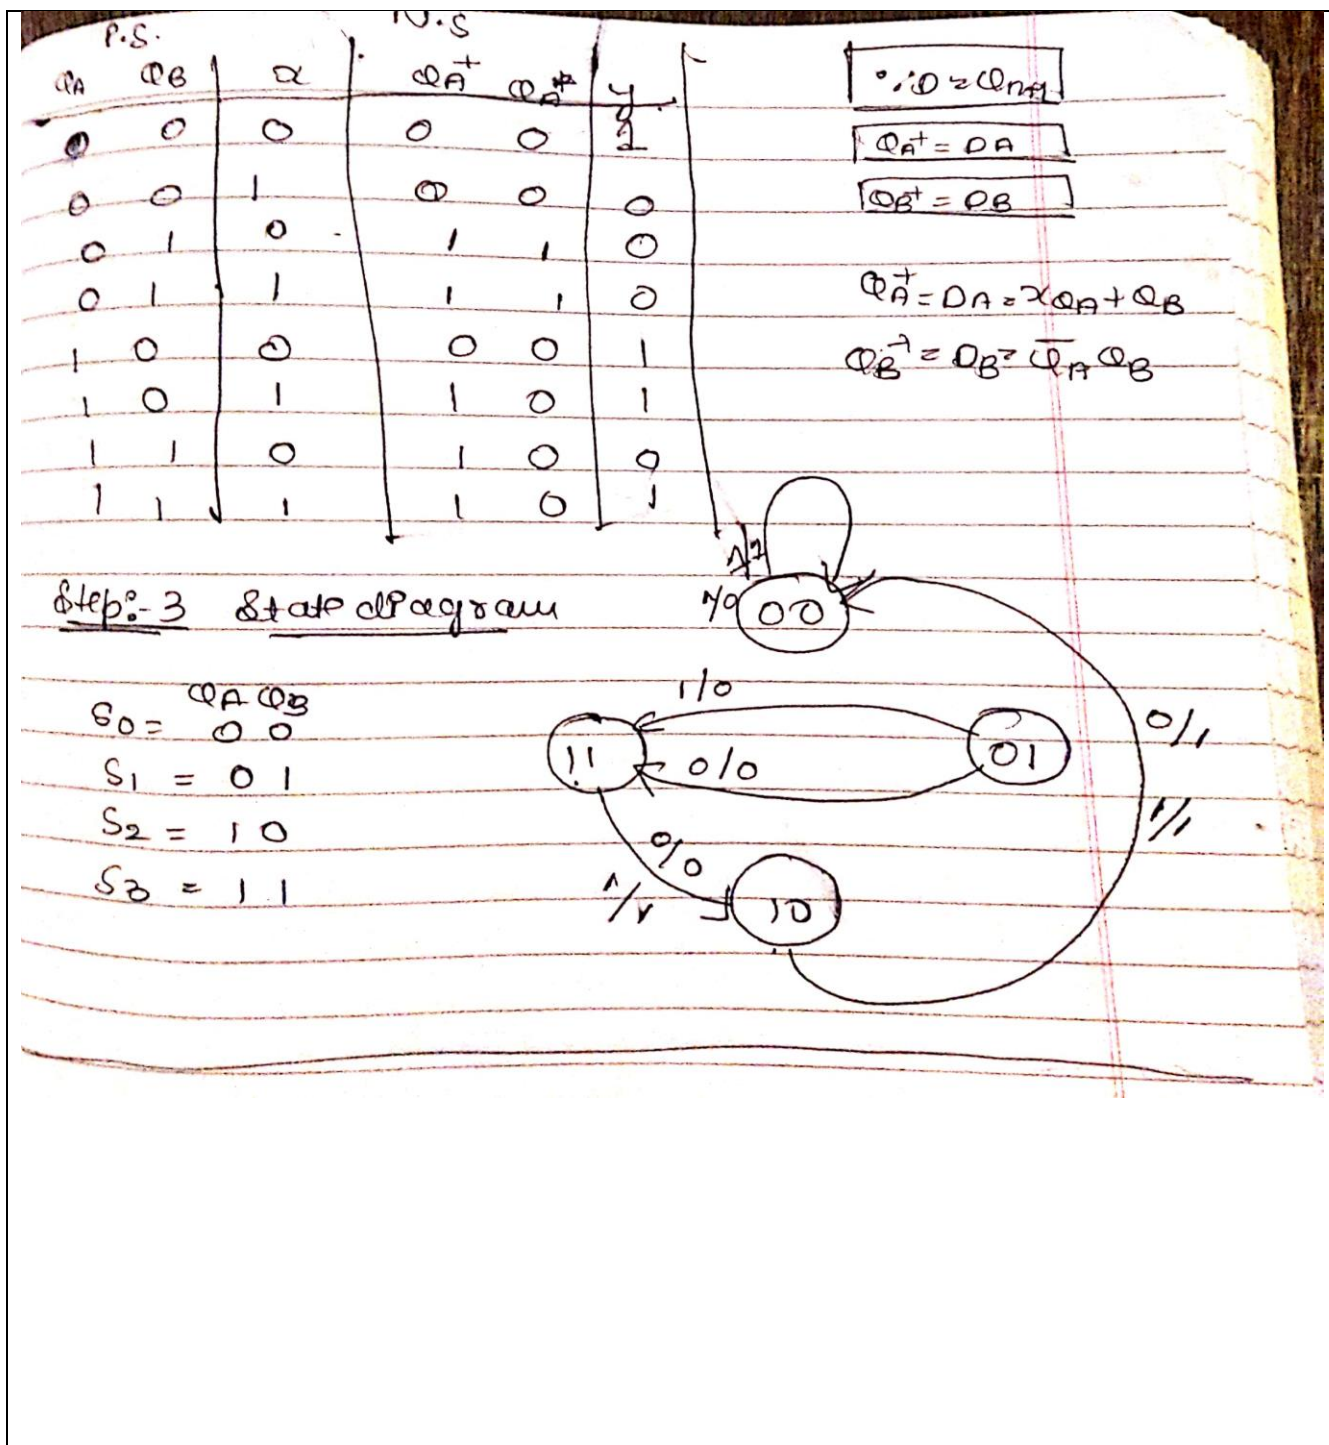 P.S. N.S
QA QB x QA+ QA* y
0 0 0 0 0 1
0 0 1 0 0 0
0 1 0 1 1 0
0 1 1 1 1 0
1 0 0 0 0 1
1 0 1 1 0 1
1 1 0 1 0 0
1 1 1 1 0 1
QA+ = DA
QB+ = DB
QA+ = DA = xQA + QB
QB+ = DB = Q̅A QB
Step:- 3 State diagram
QA QB
S0 = 0 0
S1 = 0 1
S2 = 1 0
S3 = 1 1
00
1/0
11
01
0/0
0/1
1/1
0/0
10